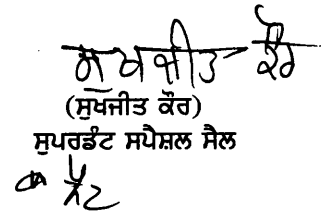 ਸੁਖਜੀਤ ਕੌਰ
(ਸੁਖਜੀਤ ਕੌਰ)
ਸੁਪਰਡੰਟ ਸਪੈਸ਼ਲ ਸੈਲ